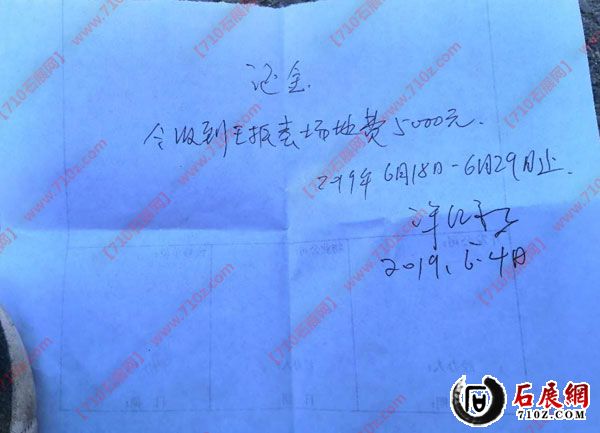 定金
今收到王振春场地费5000元.
2019年6月18日-6月29日止.
2019.6.4日
【710石展网】www.710z.com
石展網
710z.com